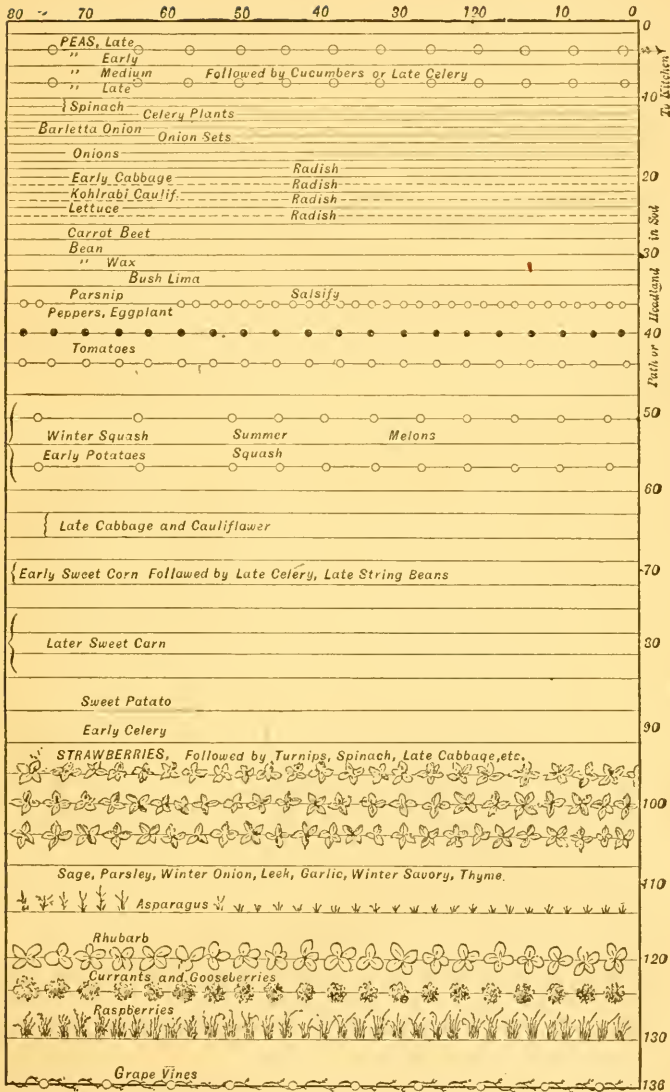 80 70 60 50 40 30 120 10 0
PEAS, Late
" Early
" Medium Followed by Cucumbers or Late Celery
" Late
10
Spinach
Celery Plants
Barletta Onion
Onion Sets
Onions
Radish
Early Cabbage
20
Radish
Kohlrabi Caulif.
Radish
Lettuce
Radish
Carrot Beet
Bean
30
" Wax
Bush Lima
Parsnip Salsify
Peppers, Eggplant
40
Tomatoes
50
Winter Squash Summer Melons
Early Potatoes Squash
60
Late Cabbage and Cauliflower
70
Early Sweet Corn Followed by Late Celery, Late String Beans
Later Sweet Carn
80
Sweet Patato
Early Celery
90
STRAWBERRIES, Followed by Turnips, Spinach, Late Cabbage, etc.
100
Sage, Parsley, Winter Onion, Leek, Garlic, Winter Savory, Thyme.
110
Asparagus
Rhubarb
120
Currants and Gooseberries
Raspberries
130
Grape Vines
136
To Kitchen
Path or Headland in Sod